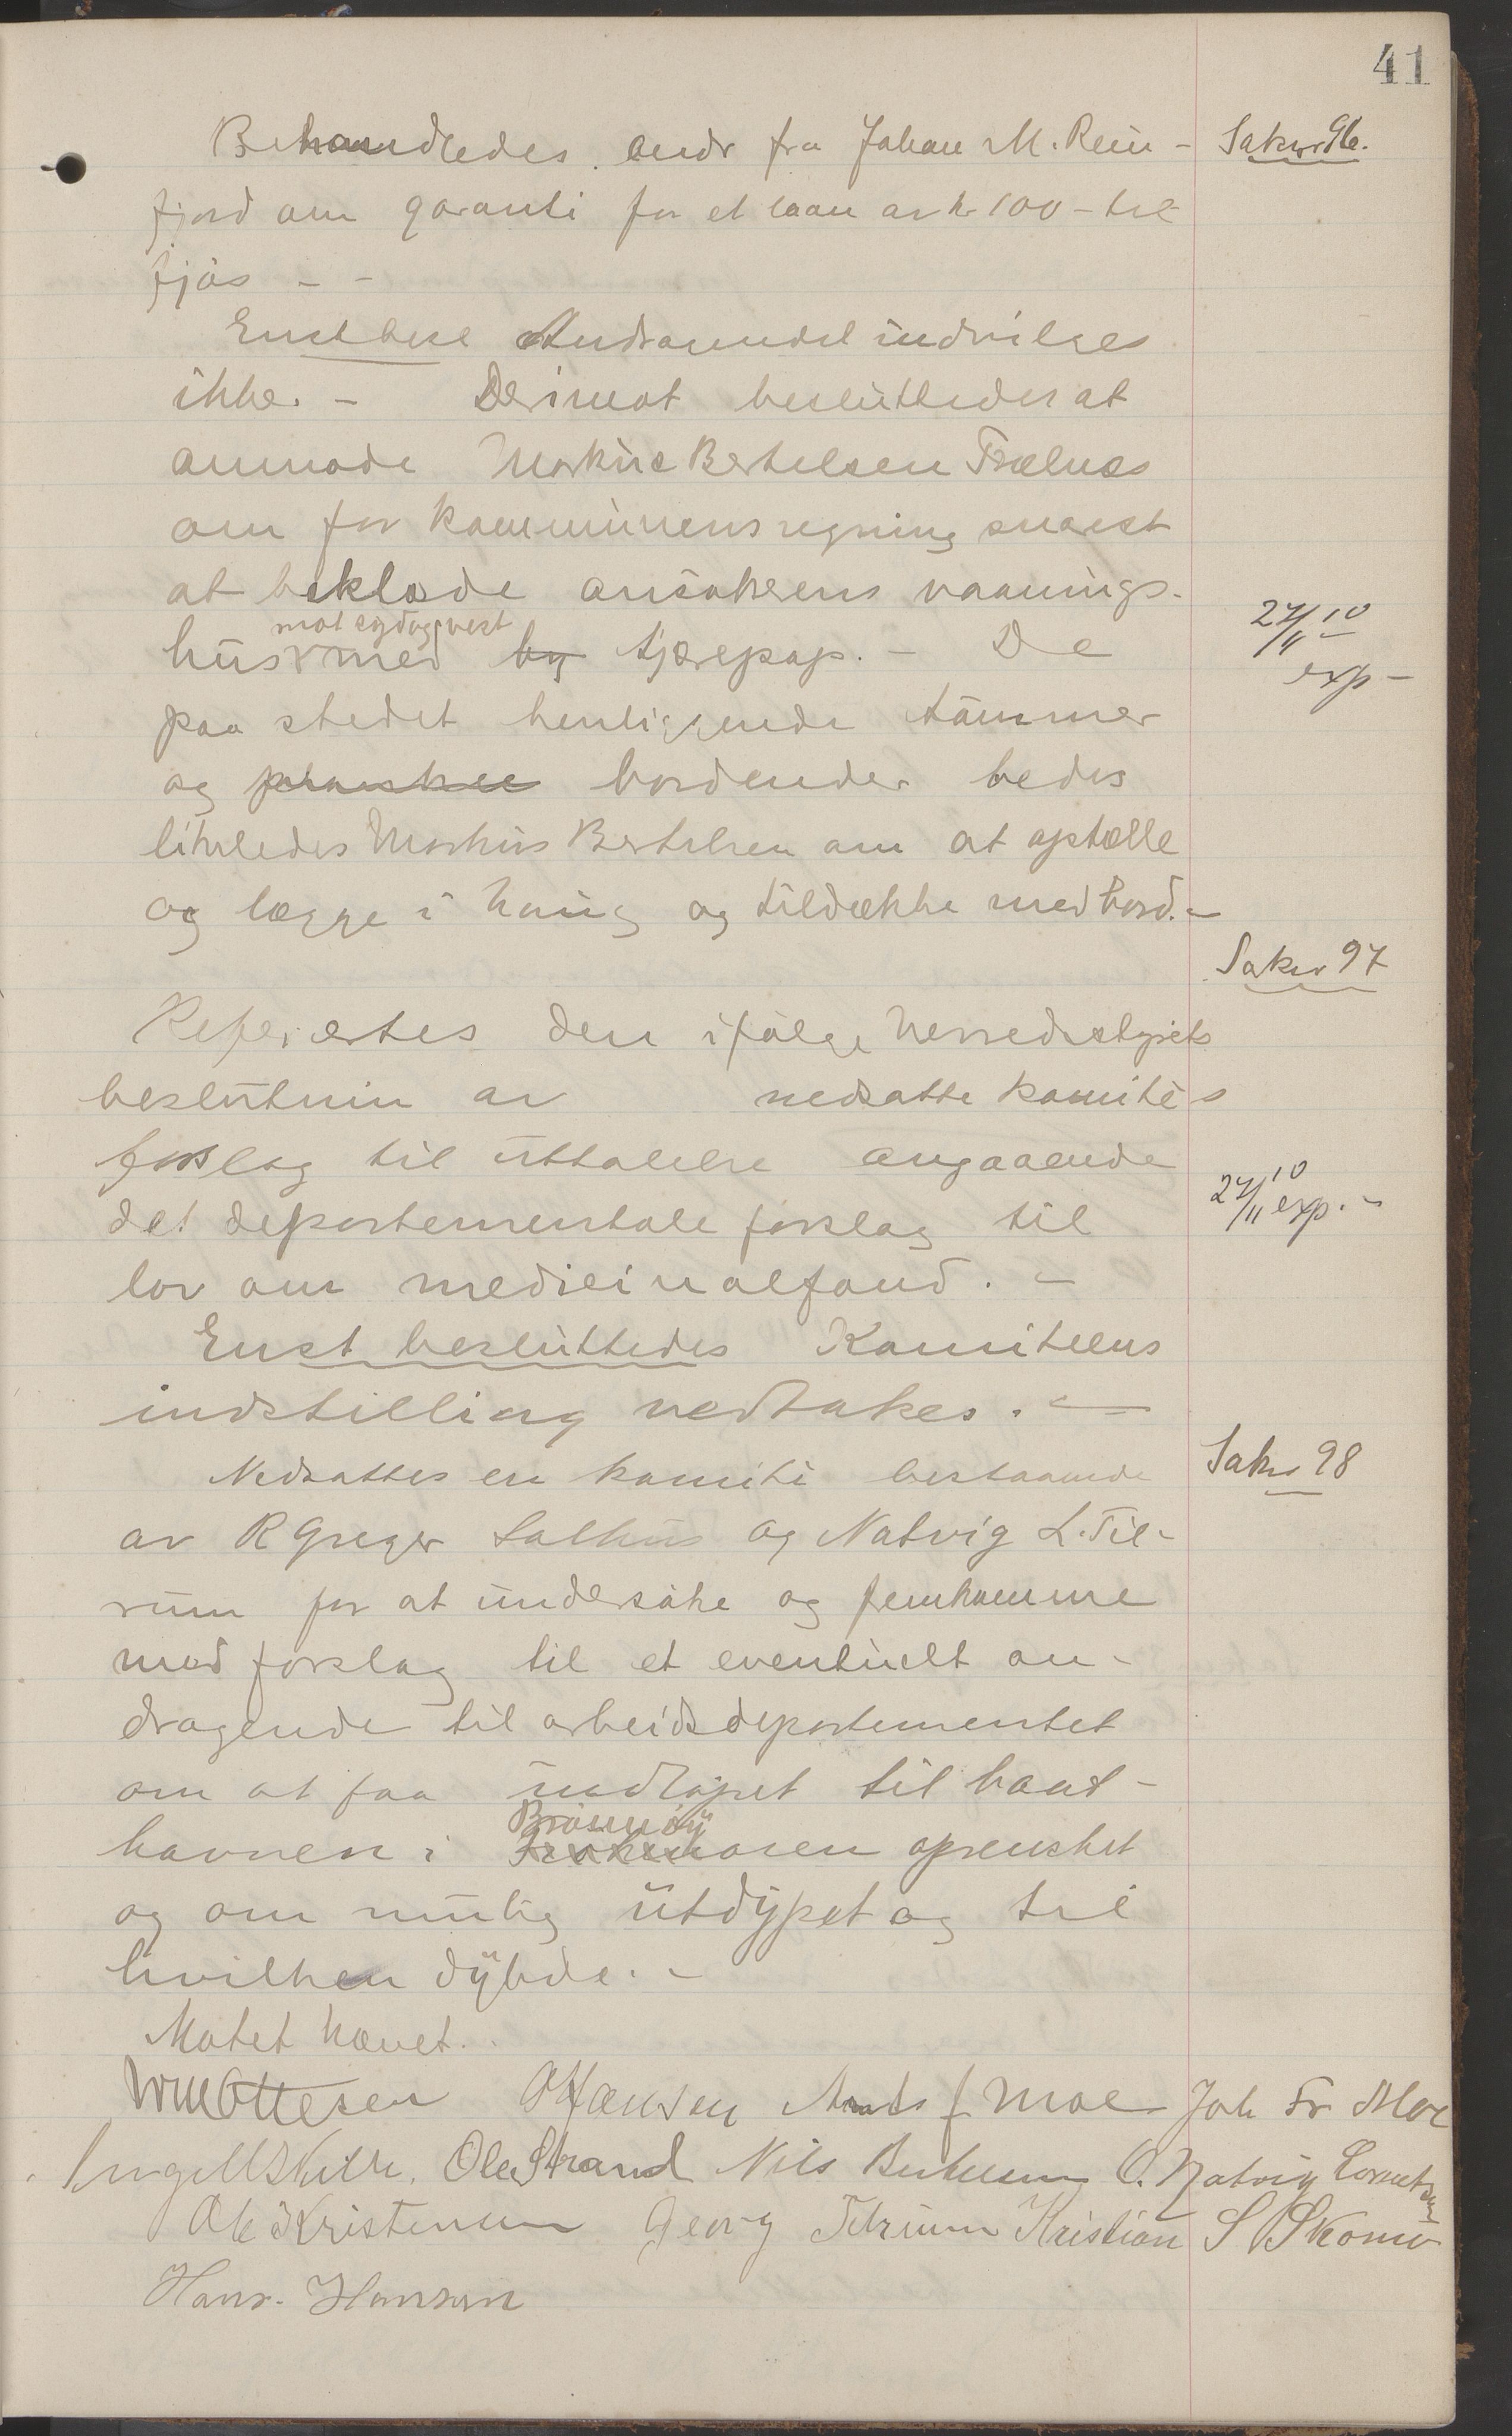 41
Behandledes andr fra Johan M. Rein-
Saknr 96.
fjord om garanti for et laan av kr 100 - til
fjös - -
Enst besl Andragendet indvilges
ikke. - Derimot besluttedes at
anmode Markus Bertelsen Trælnes
om for kommunens regning snarest
at beklæde ansökerens vaanings-
mot syd og vest
hus med by tjærepap. - De
27/11 10
exp -
paa stedet henliggende tömmer
og planker bordender bedes
likeledes Markus Bertelsen om at optælle
og lægge i haug og tildække med bord. -
Saknr 97
Refertes den ifölge herredsstyrets
beslutnin av nedsatte komités
forslag til uttalelse angaaende
27/11 10 exp. -
det departementale forslag til
lov om medicinalfond. -
Enst besluttedes Komiteens
indstilling vedtakes. -
Nedsattes en komité bestaaende
Saknr 98
av R Greger Salhus og Natvig L. Til-
rum for at undersöke og fremkomme
med forslag til et eventuelt an-
dragende til arbeidsdepartementet
om at faa indlöpet til baat-
havnen i Brönnöy oprensket
og om mulig utdypet og til
hvilken dybde. -
Mötet hævet.
Wm Ottesen O Hansen J Moe Joh Fr Moe
Ole Strand Nils O. Natvig Lorentsen
Ole Kristensen Georg Tilrum Kristian S Skomo
Hans Hansen